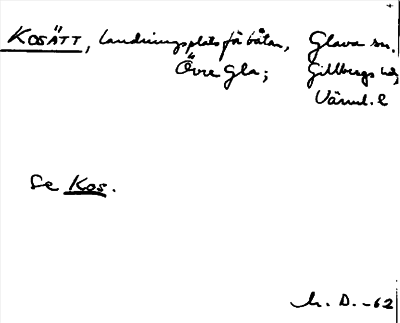 KOSÄTT, landningsplats för båtar, Glava sn.
Övre Gla; Gillbergs hd,
Värml. l
Se Kos.
h. D. -62